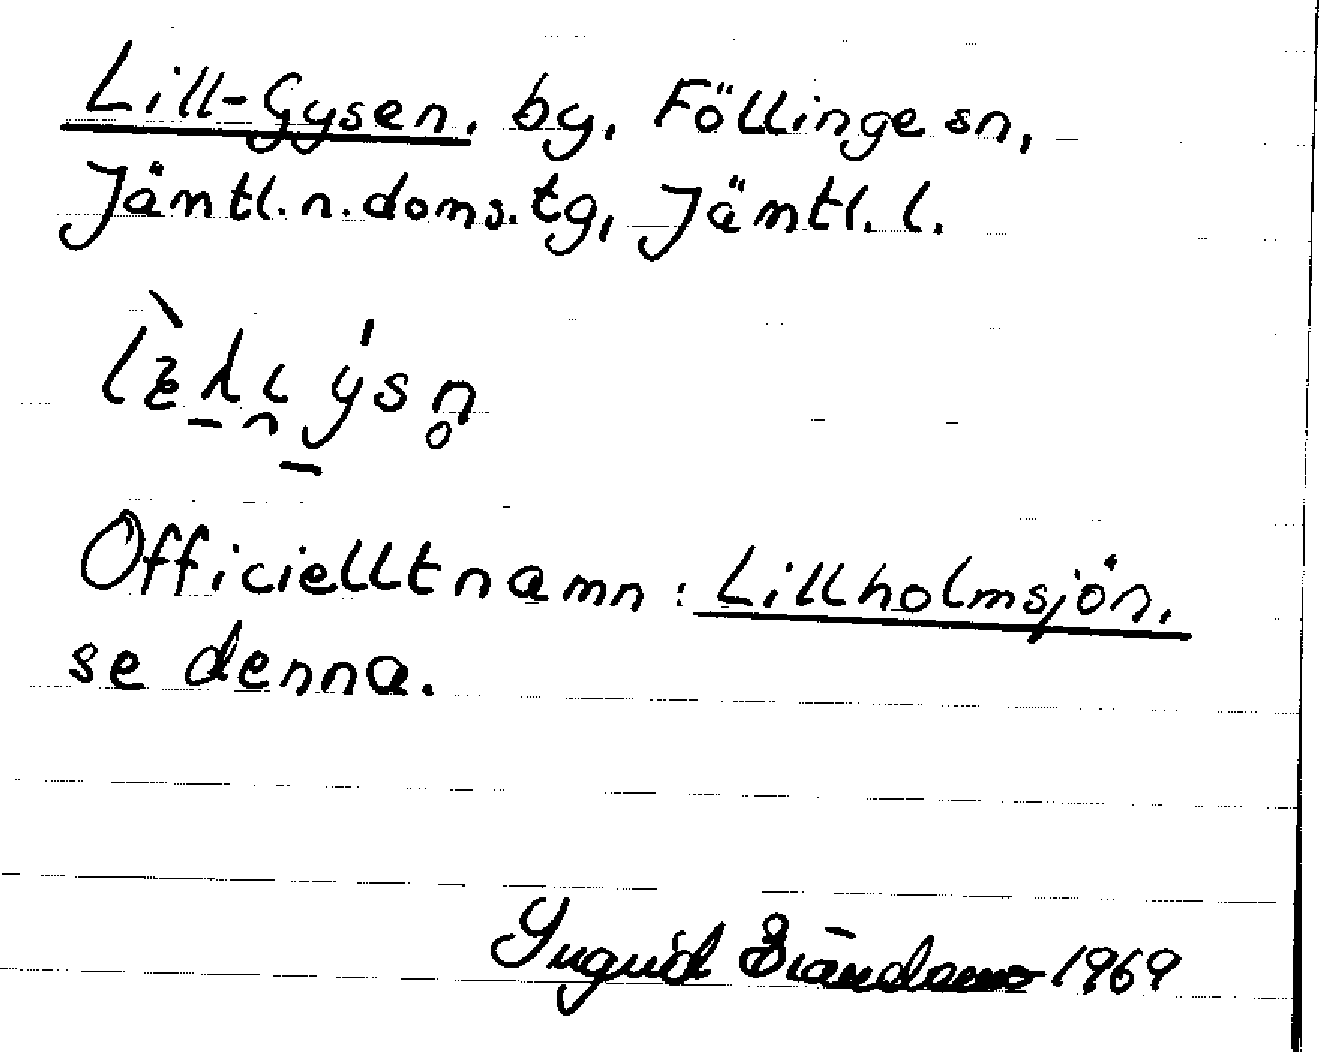 Lill-Gysen, by, Föllinge sn,
Jämtl. n. doms. tg, Jämtl. l.
Officiellt namn: Lillholmsjön,
se denna.
Ingrid 1969